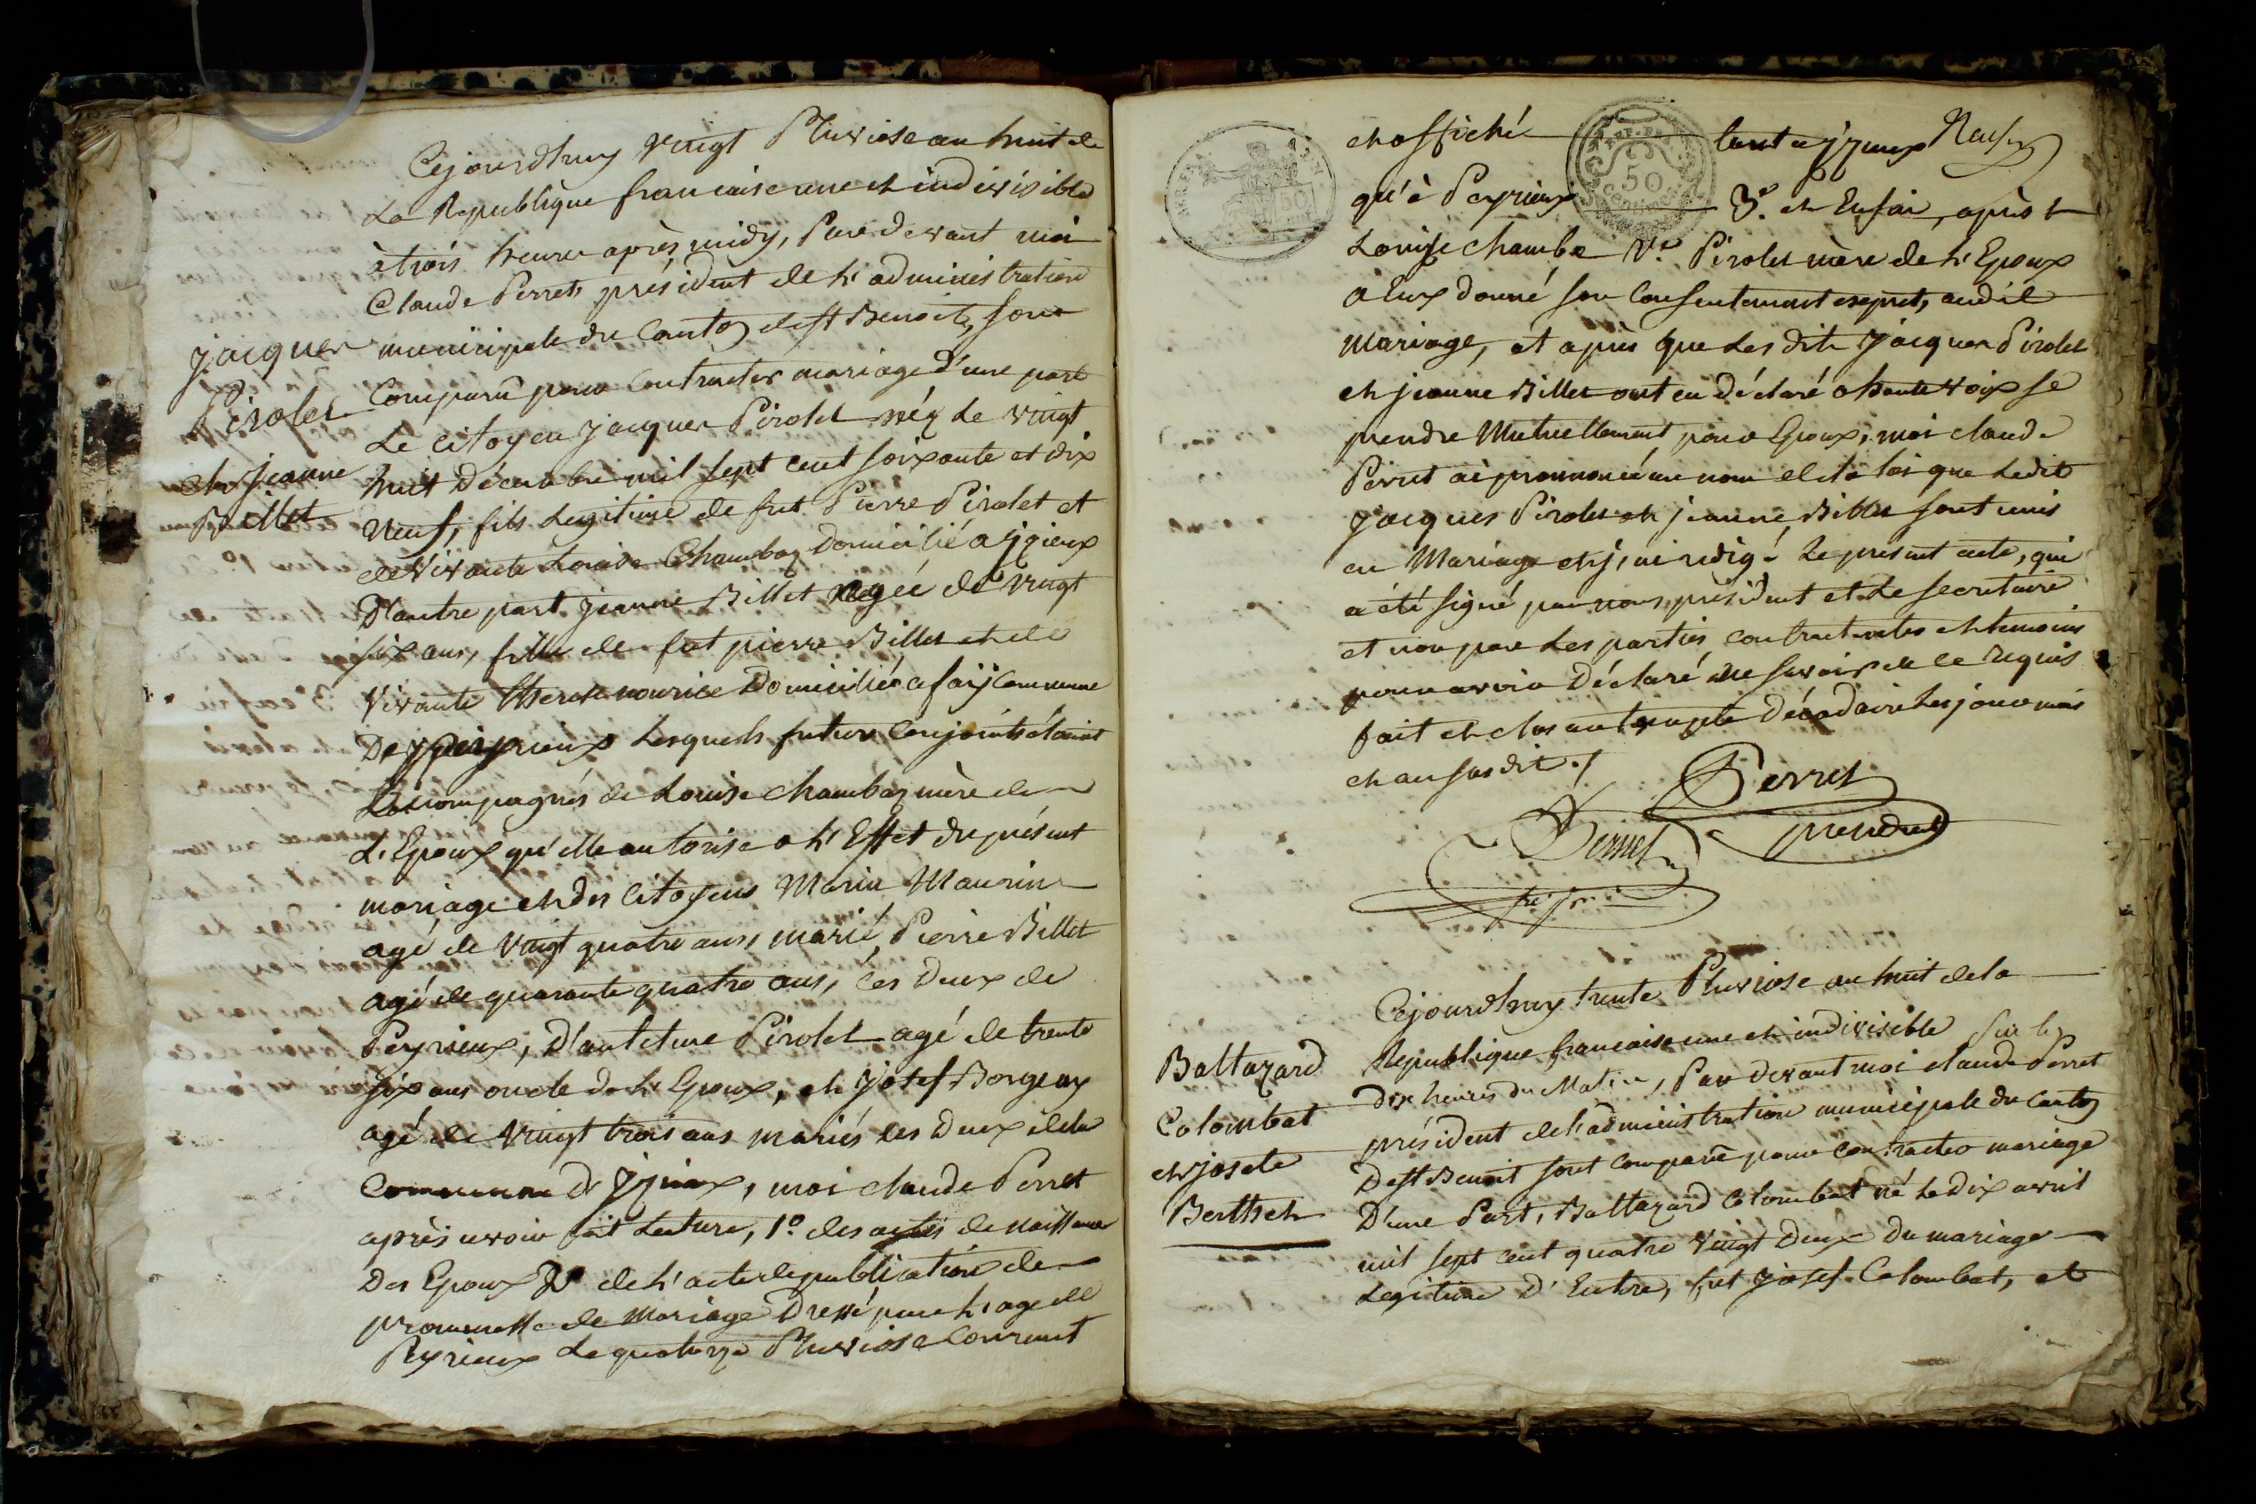 Cejourdhuy vingt Pluviose an huit de
La Republique francaise une et indivisible
à trois heures après midy, Pardevant moi
Claude Perret président de L'administration
municipale du Canton de St Benoit, sont
Comparu pour Contracter mariage d'une part
Jacques
Pirolet
et jeanne
Billet
Le citoyen Jacques Pirolet néz Le vingt
huit Décembre mil sept cent soixante et dix
neuf, fils Legitime de fut Pierre Pirolet et
de vivante Louise Chambaz Domicilié a jzieux
D'autre part jeanne Billet agée de vingt
six ans, fille de fut pierre Billet et de
vivante nourice Domiciliée a faÿ Commune
De peyrieux Lesquels futurs Conjoints étaint
accompagnés de Louise Chambaz mère de
L'Epoux qu'elle autorise a L'Effet du présent
mariage et des Citoyens Marin Maurin
agé de vingt quatre ans, marié, Pierre Billet
agé de quarante quatre ans, Les Deux de
Peyrieux, D'anteleme Pirolet agé de trente
six ans oncle de L'Epoux, et Josef Borgeay
agé de vingt trois ans mariés les Deux de la
Commune D'jzieux, moi claude Perret
après avoir fait Lecture, 1º. des actes de naissance
Des Epoux 2º de L'acte de publication de
promesse de Mariage Dressé par L'agent de
Peyrieux Le quatorze Pluviose Courrant
et affiché tant a jzieux
qu'à Peyrieux 3º. et Enfin, après
Louise Chambe Ve. Pirolet mère de L'Epoux
a Eux donné son Consentement exprès, audit
Mariage, et après que Les dits Jacques Pirolet
et jeanne Billet ont eu Déclaré a haute voix se
prendre Mutuellement pour Epoux, moi claude
Perret ai prononcé au nom de la loi que Ledit
Jacques Pirolet et jeanne Billet sont unis
en Mariage et j'ai redigé Le présent acte, qui
a été signé par nous président et Le secretaire
et non par Les parties contractantes et temoins
pour avoir Déclaré ne savoir de ce requis
fait et clos au temple Décadaire Les jour mois
et an susdit./
Perret
president
50
Cejourdhuy trente Pluviose an huit de la
Republique francaise une et indivisible sur les
Dix heures du Matin, Par devant moi claude Perret
président de L'administration municipale du Canton
De St Benoit sont comparu pour contracter mariage
D'une Part, Baltazard Colombat né Le dix avril
mil sept cent quatre vingt Deux du mariage
Legitime D'Entre, fut Josef Colombat, et
Baltazard
Colombat
et josete
Berthet